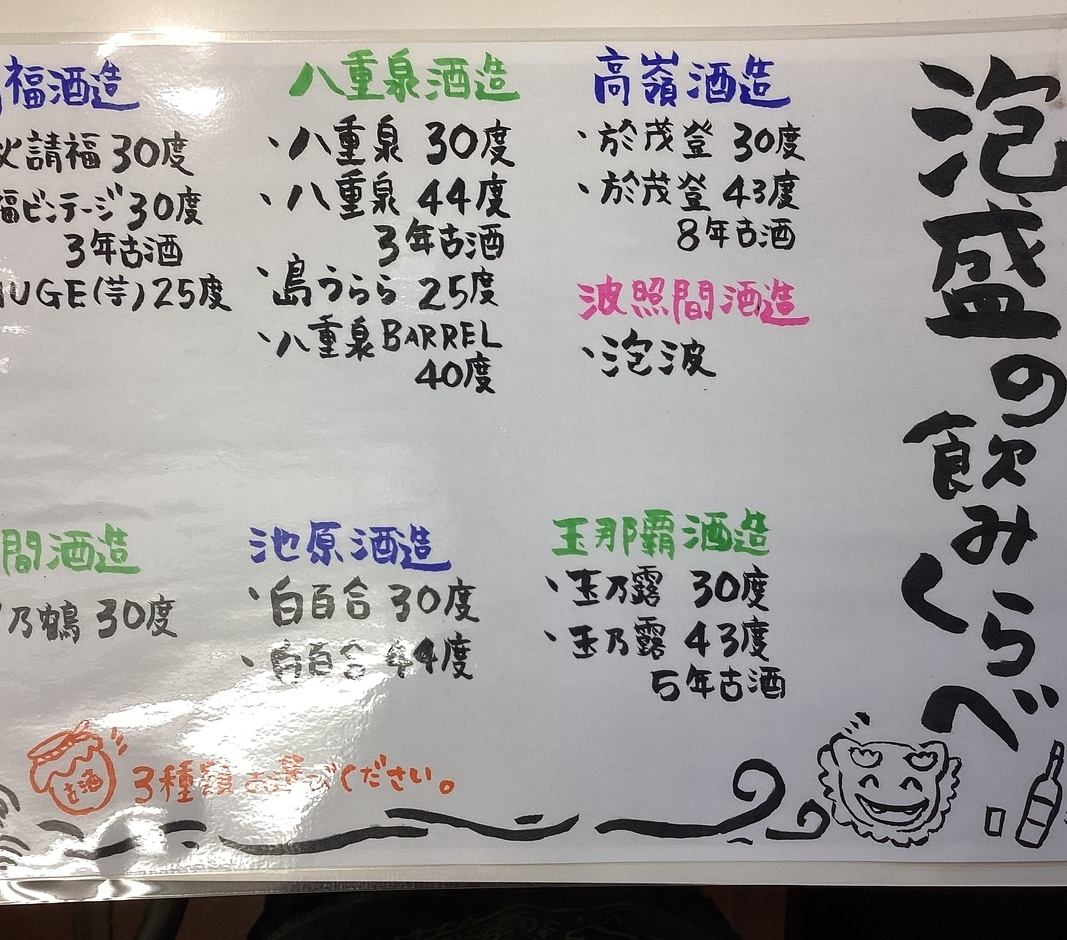 泡盛の飲みくらべ
高嶺酒造
・於茂登 30度
・於茂登 43度
8年古酒
波照間酒造
・泡波
八重泉酒造
・八重泉 30度
・八重泉 44度
3年古酒
・島うらら 25度
・八重泉BARREL
40度
福酒造
請福 30度
福ビンテージ 30度
3年古酒
UGE(芋) 25度
玉那覇酒造
・玉乃露 30度
・玉乃露 43度
5年古酒
池原酒造
・白百合 30度
・白百合 44度
間酒造
乃鶴 30度
古酒
3種類お選びください。